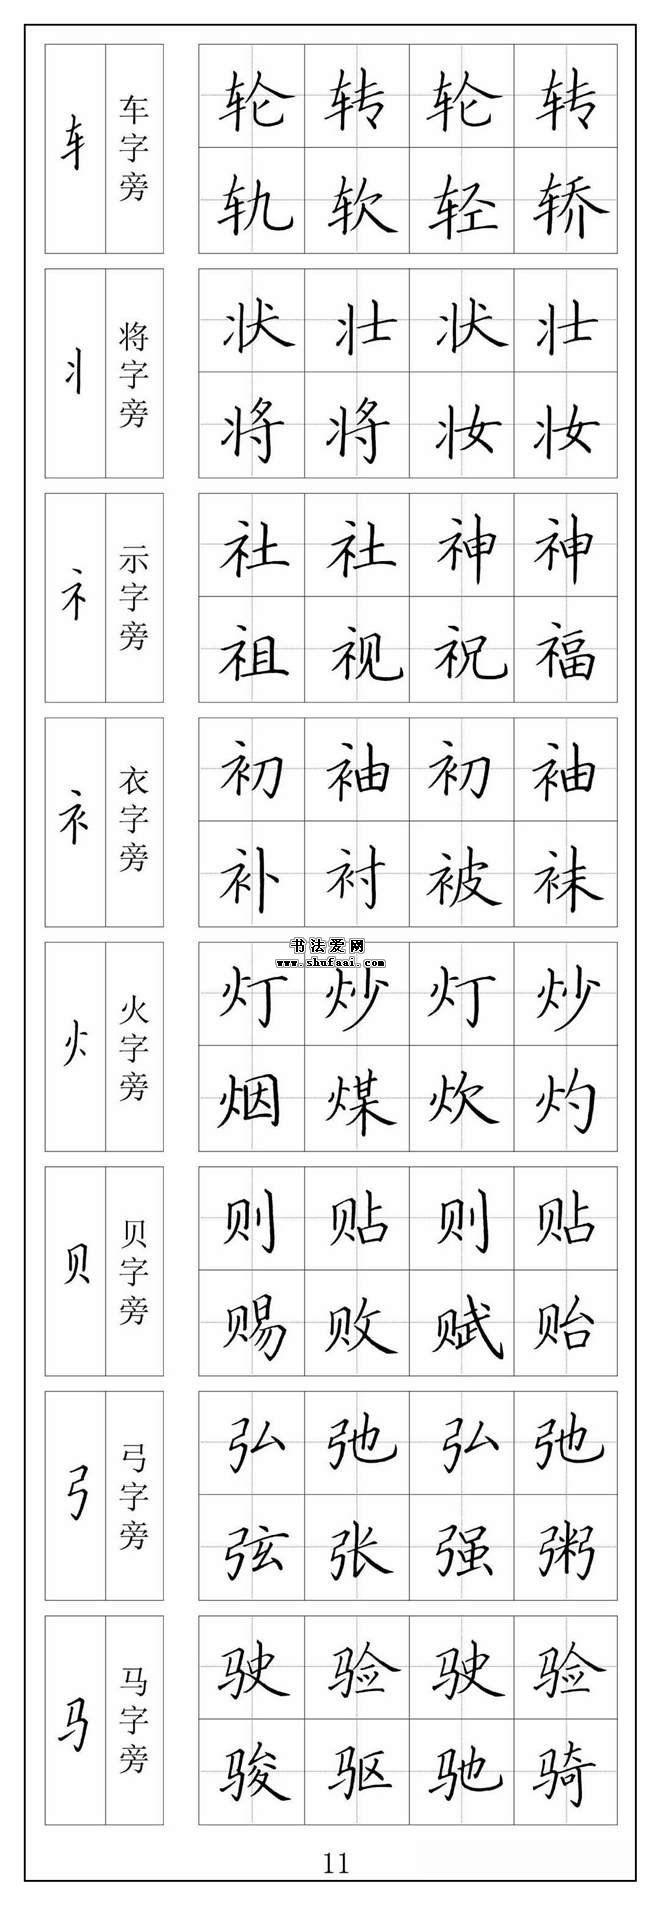 车 车字旁
轮 转 轮 转
轨 软 轻 轿
丬 将字旁
状 壮 状 壮
将 将 妆 妆
礻 示字旁
社 社 神 神
祖 视 祝 福
衤 衣字旁
初 袖 初 袖
补 衬 被 袜
书法爱网
www.shufaai.com
火 火字旁
灯 炒 灯 炒
烟 煤 炊 灼
贝 贝字旁
则 贴 则 贴
赐 败 赋 贻
弓 弓字旁
弘 弛 弘 弛
弦 张 强 粥
马 马字旁
驶 验 驶 验
骏 驱 驰 骑
11